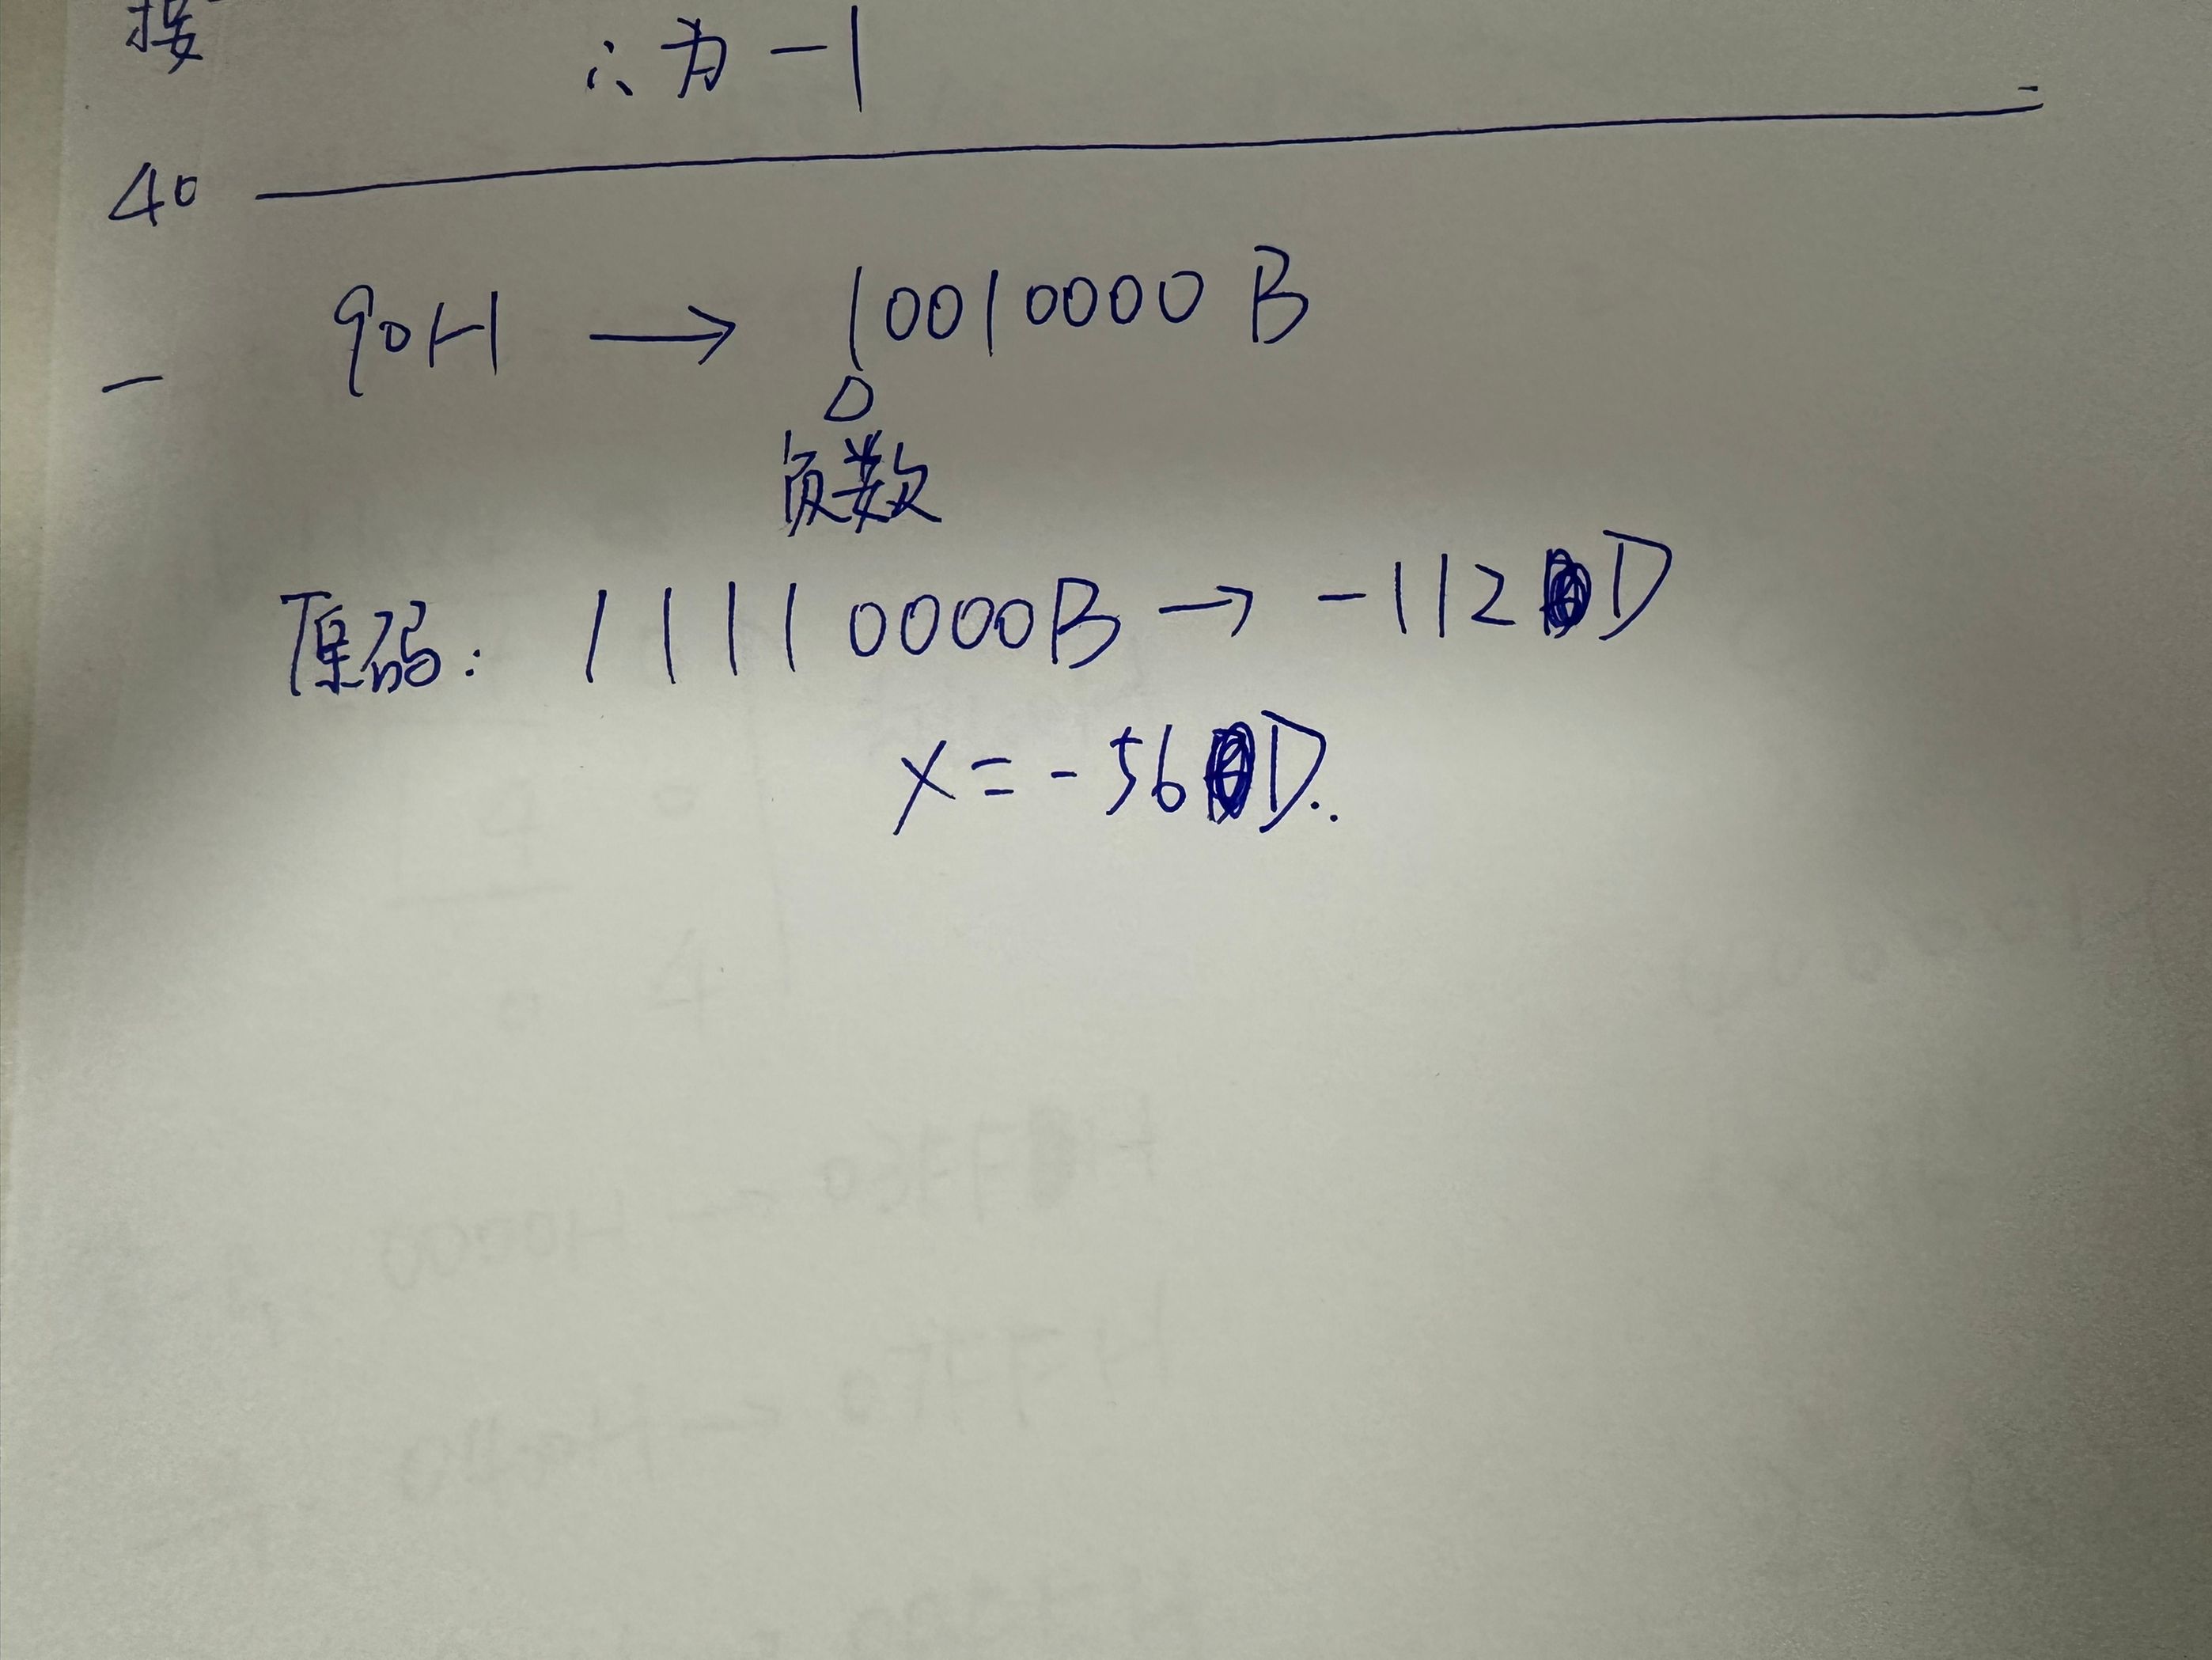 接
∴为 -1
40
90H → 10010000 B
负数
原码: 11110000B → -112 D
x = -56 D.